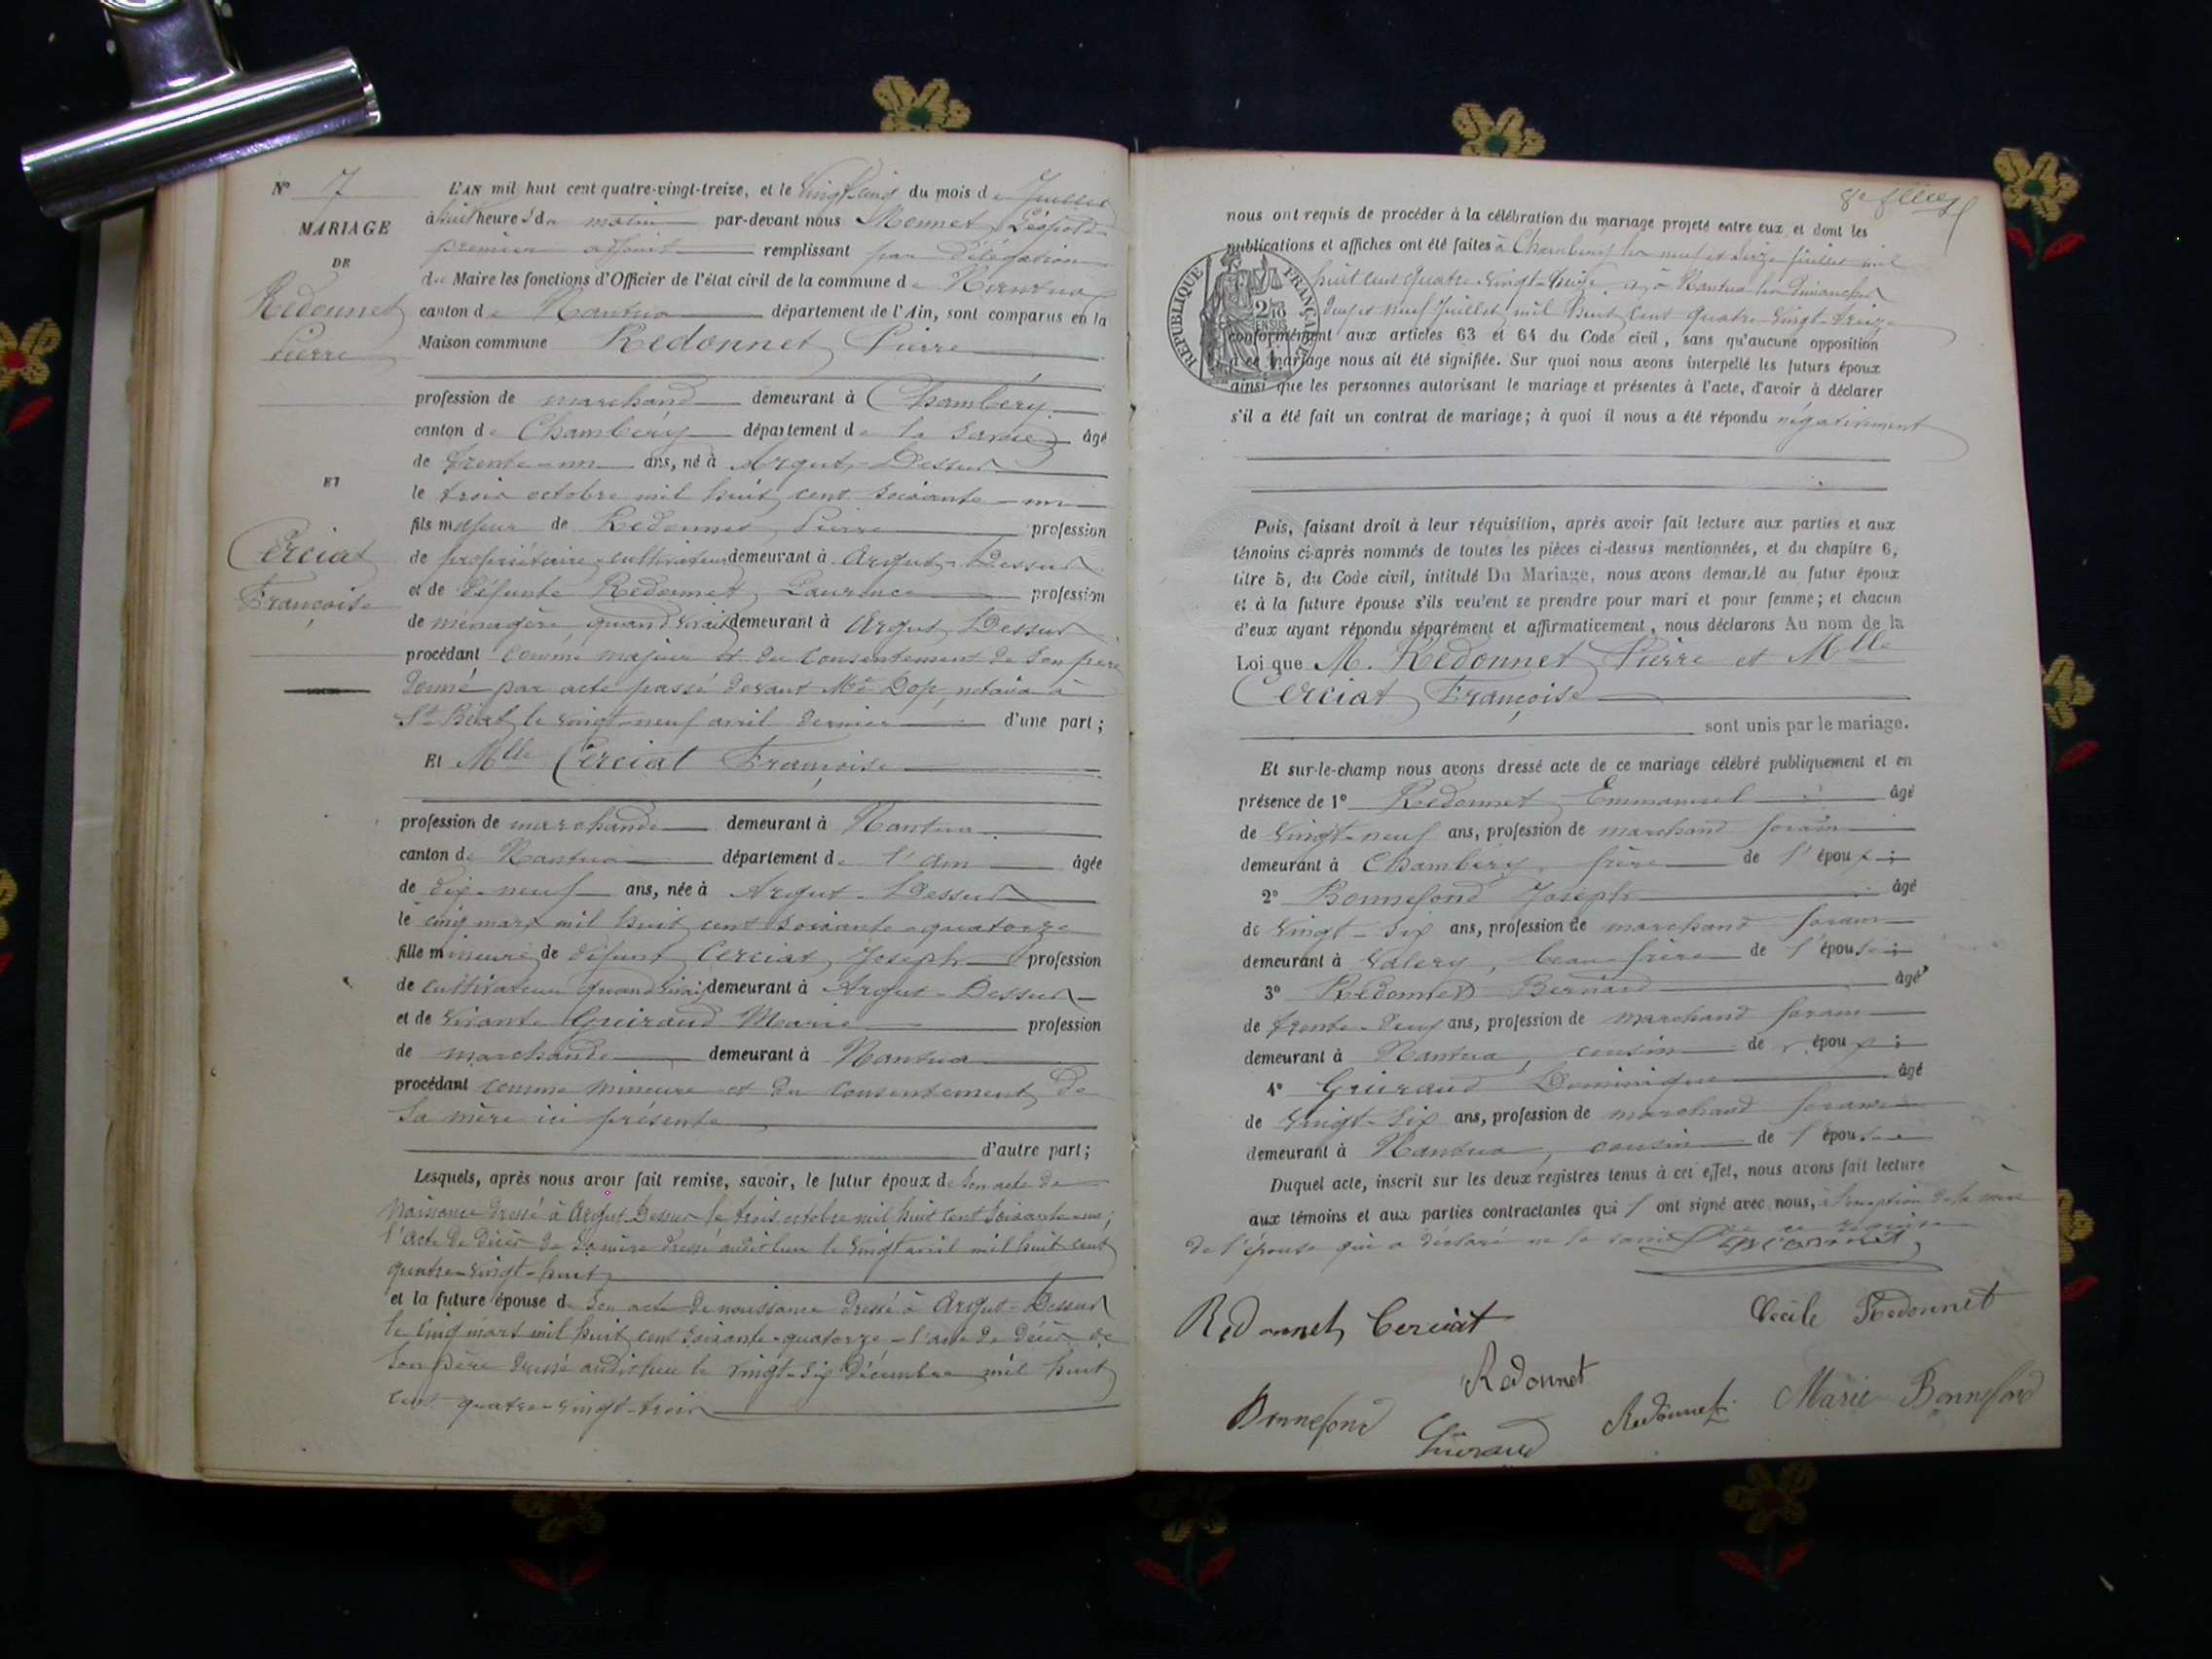 N° 7
MARIAGE
DE
Redonnet
Pierre
ET
Cerciat
Françoise
L'AN mil huit cent quatre-vingt-treize, et le vingt cinq du mois de Juillet
à huit heures du matin par-devant nous Monnet Léopold
premier adjoint remplissant par délégation
du Maire les fonctions d'Officier de l'état civil de la commune de Nantua
canton de Nantua département de l'Ain, sont comparus en la
Maison commune Redonnet Pierre
profession de marchand demeurant à Chambéry
canton de Chambéry département de la Savoie âgé
de trente-un ans, né à Argut-Dessus
le trois octobre mil huit cent soixante-un
fils majeur de Redonnet Pierre profession
de propriétaire-cultivateur demeurant à Argut-Dessus
et de défunte Redonnet Laurence profession
de ménagère quand vivait demeurant à Argut Dessus
procédant comme majeur et du consentement de son père
donné par acte passé devant Me Dop, notaire à
St Béat le vingt-neuf avril dernier d'une part;
Et Mlle Cerciat Françoise
profession de marchande demeurant à Nantua
canton de Nantua département de l'Ain âgée
de dix-neuf ans, née à Argut-Dessus
le cinq mars mil huit cent soixante-quatorze
fille mineure de défunt Cerciat Joseph profession
de cultivateur quand vivait demeurant à Argut-Dessus
et de vivante Guiraud Marie profession
de marchande demeurant à Nantua
procédant comme mineure et du consentement de
sa mère ici présente
d'autre part;
Lesquels, après nous avoir fait remise, savoir, le futur époux de son acte de
naissance dressé à Argut Dessus le trois octobre mil huit cent soixante-un;
l'acte de décès de sa mère dressé audit lieu le vingt avril mil huit cent
quatre-vingt-huit
et la future épouse de son acte de naissance dressé à Argut-Dessus
le cinq mars mil huit cent soixante-quatorze - l'acte de décès de
son père dressé audit lieu le vingt-six décembre mil huit
cent quatre-vingt-trois
nous ont requis de procéder à la célébration du mariage projeté entre eux et dont les
publications et affiches ont été faites à Chambéry les neuf et seize juillet mil
huit cent quatre-vingt-treize et à Nantua les dimanches
deux et neuf Juillet mil huit cent quatre-vingt-treize
conformément aux articles 63 et 64 du Code civil, sans qu'aucune opposition
à ce mariage nous ait été signifiée. Sur quoi nous avons interpellé les futurs époux
ainsi que les personnes autorisant le mariage et présentes à l'acte, d'avoir à déclarer
s'il a été fait un contrat de mariage; à quoi il nous a été répondu négativement
RÉPUBLIQUE FRANÇAISE
2/10
EN SUS
Puis, faisant droit à leur réquisition, après avoir fait lecture aux parties et aux
témoins ci-après nommés de toutes les pièces ci-dessus mentionnées, et du chapitre 6,
titre 5, du Code civil, intitulé Du Mariage, nous avons demandé au futur époux
et à la future épouse s'ils veulent se prendre pour mari et pour femme; et chacun
d'eux ayant répondu séparément et affirmativement, nous déclarons Au nom de la
Loi que M. Redonnet Pierre et Mlle
Cerciat Françoise
sont unis par le mariage.
Et sur-le-champ nous avons dressé acte de ce mariage célébré publiquement et en
présence de 1° Redonnet Emmanuel âgé
de vingt-neuf ans, profession de marchand forain
demeurant à Chambéry, frère de l'époux;
2° Bonnefond Joseph âgé
de vingt-six ans, profession de marchand forain
demeurant à Valery, beau-frère de l'épouse;
3° Redonnet Bernard âgé
de trente-deux ans, profession de marchand forain
demeurant à Nantua, cousin de l'époux;
4° Guiraud Dominique âgé
de vingt-six ans, profession de marchand forain
demeurant à Nantua, cousin de l'épouse
Duquel acte, inscrit sur les deux registres tenus à cet effet, nous avons fait lecture
aux témoins et aux parties contractantes qui ont signé avec nous, à l'exception de la mère
de l'épouse qui a déclaré ne le savoir
Redonnet Cerciat
Cécile Redonnet
Redonnet
Bonnefond
Guiraud
Redonnet
Marie Bonnefond